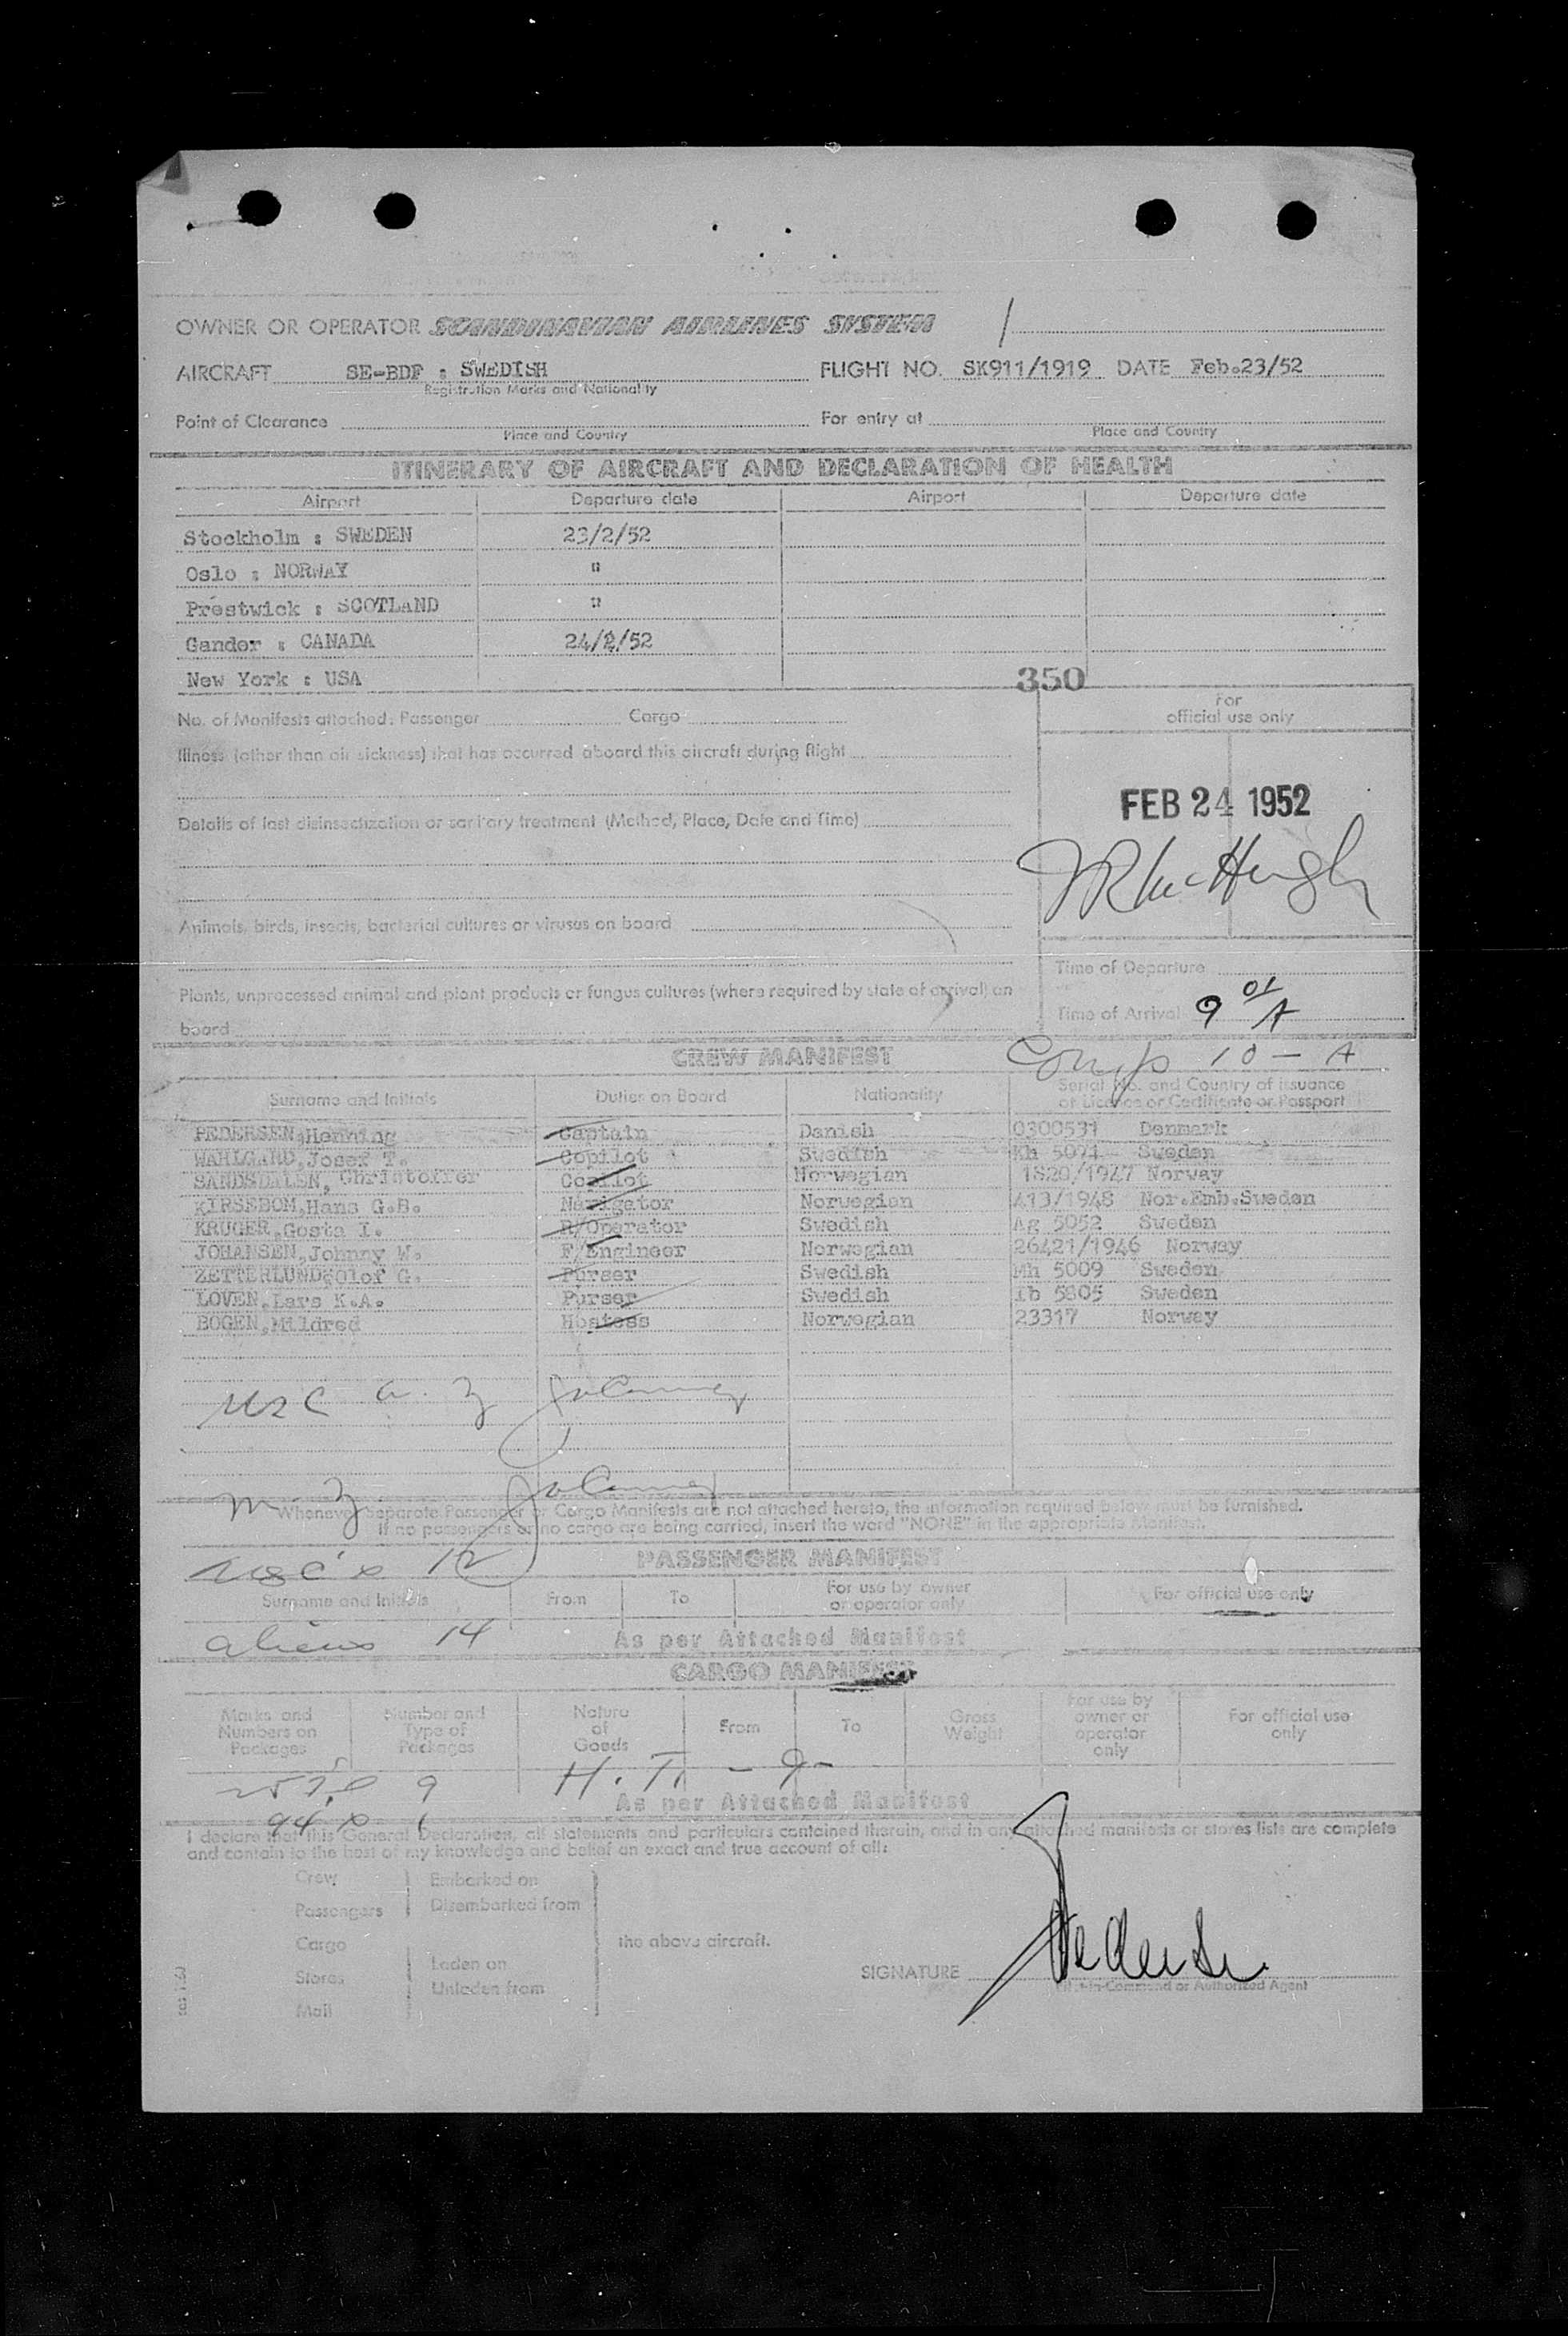 OWNER OR OPERATOR SCANDINAVIAN AIRLINES SYSTEM
AIRCRAFT SE-BDF : SWEDISH FLIGHT NO. SK911/1919 DATE Feb.23/52
Registration Marks and Nationality
Point of Clearance For entry at
Place and Country Place and Country
ITINERARY OF AIRCRAFT AND DECLARATION OF HEALTH
Airport Departure date Airport Departure date
Stockholm : SWEDEN 23/2/52
Oslo : NORWAY "
Prestwick : SCOTLAND "
Gander : CANADA 24/2/52
New York : USA
350
For
official use only
No. of Manifests attached: Passenger Cargo
Illness (other than air sickness) that has occurred aboard this aircraft during flight
FEB 24 1952
Details of last disinsectization or sanitary treatment (Method, Place, Date and Time)
Animals, birds, insects, bacterial cultures or viruses on board
Time of Departure
Plants, unprocessed animal and plant products or fungus cultures (where required by state of arrival) on
board
Time of Arrival 9 01 A
CREW MANIFEST
Comp 10 - A
Surname and Initials Duties on Board Nationality Serial No. and Country of issuance
of Licence or Certificate or Passport
PEDERSEN,Henning Captain Danish 0300531 Denmark
WAHLGARD,Josef T. Copilot Swedish Kh 5071 Sweden
SANDSDALEN, Christoffer Copilot Norwegian 1820/1947 Norway
KIRSEBOM,Hans G.B. Navigator Norwegian A13/1948 Nor.Emb.Sweden
KRUGER,Gosta I. R/Operator Swedish Ag 5052 Sweden
JOHANSEN,Johnny W. F/Engineer Norwegian 26421/1946 Norway
ZETTERLUND,Olof G. Purser Swedish Mh 5009 Sweden
LOVEN,Lars K.A. Purser Swedish Ib 5805 Sweden
BOGEN,Mildred Hostess Norwegian 23317 Norway
Whenever Separate Passenger or Cargo Manifests are not attached hereto, the information required below must be furnished.
If no passengers or no cargo are being carried, insert the word "NONE" in the appropriate Manifest.
USC's 12
PASSENGER MANIFEST
Surname and Initials From To For use by owner
or operator only For official use only
Aliens 14
As per Attached Manifest
CARGO MANIFEST
Marks and
Numbers on
Packages Number and
Type of
Packages Nature
of
Goods From To Gross
Weight For use by
owner or
operator
only For official use
only
H. T. - 9 -
As per Attached Manifest
I declare that this General Declaration, all statements and particulars contained therein, and in any attached manifests or stores lists are complete
and contain to the best of my knowledge and belief an exact and true account of all:
Crew Embarked on
Passengers Disembarked from
Cargo the above aircraft.
Stores Laden on
Unladen from
Mail
SIGNATURE Pedersen
Pilot-in-Command or Authorized Agent